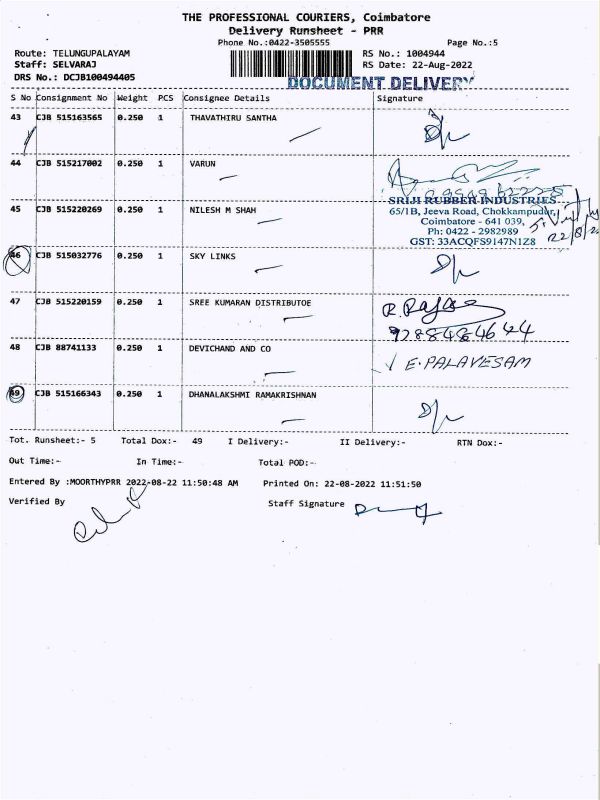 THE PROFESSIONAL COURIERS, Coimbatore
Delivery Runsheet - PRR
Phone No.:0422-3505555 Page No.:5
Route: TELUNGUPALAYAM RS No.: 1004944
Staff: SELVARAJ RS Date: 22-Aug-2022
DRS No.: DCJB100494405
DOCUMENT DELIVERY
S No Consignment No Weight PCS Consignee Details Signature
43 CJB 515163565 0.250 1 THAVATHIRU SANTHA
44 CJB 515217002 0.250 1 VARUN
SRIJI RUBBER INDUSTRIES
45 CJB 515220269 0.250 1 NILESH M SHAH 65/1B, Jeeva Road, Chokkampudur,
Coimbatore - 641 039,
Ph: 0422 - 2982989
GST: 33ACQFS9147N1Z8
46 CJB 515032776 0.250 1 SKY LINKS
47 CJB 515220159 0.250 1 SREE KUMARAN DISTRIBUTOE
9288484644
48 CJB 88741133 0.250 1 DEVICHAND AND CO E.PALAVESAM
49 CJB 515166343 0.250 1 DHANALAKSHMI RAMAKRISHNAN
Tot. Runsheet:- 5 Total Dox:- 49 I Delivery:- II Delivery:- RTN Dox:-
Out Time:- In Time:- Total POD:-
Entered By :MOORTHYPRR 2022-08-22 11:50:48 AM Printed On: 22-08-2022 11:51:50
Verified By Staff Signature